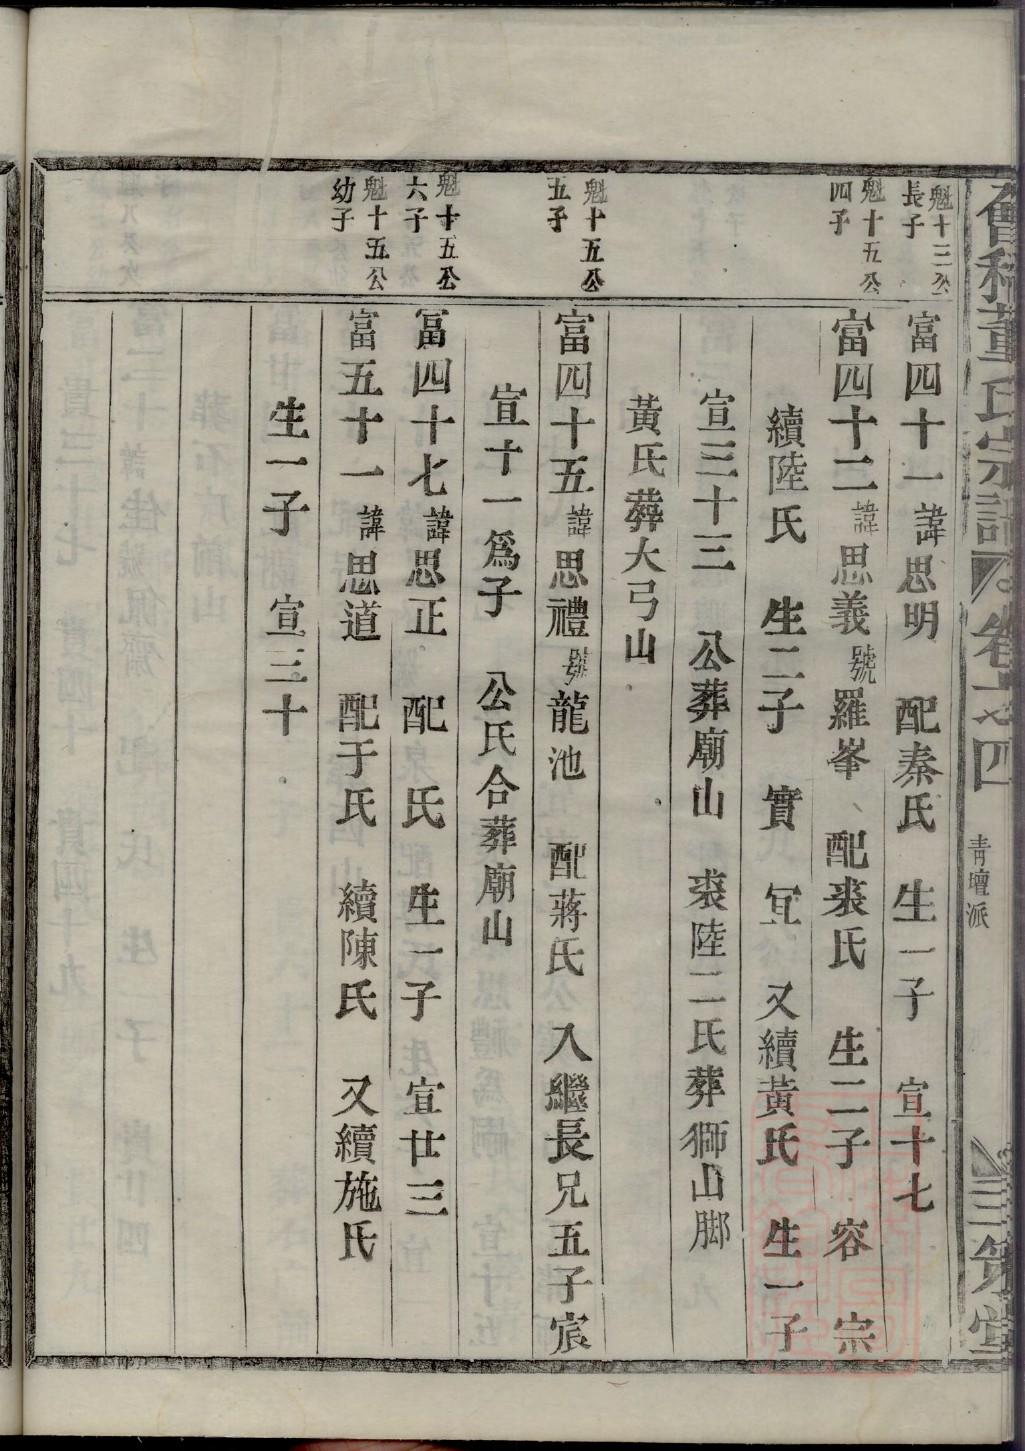 會稽董氏宗譜
卷之四
青壇派
三策堂
魁十三公
長子
富四十一諱思明 配秦氏 生一子 宣十七
魁十五公
四子
富四十二諱思義號羅峯 配裘氏 生二子 容 宗
續陸氏 生二子 實 冝 又續黃氏 生一子
宣三十三 公葬廟山 裘陸二氏葬獅山脚
黃氏葬大弓山
魁十五公
五子
富四十五諱思禮號龍池 配蔣氏 入繼長兄五子宸
宣十一爲子 公氏合葬廟山
魁十五公
六子
富四十七諱思正 配 氏 生一子 宣廿三
魁十五公
幼子
富五十一諱思道 配于氏 續陳氏 又續施氏
生一子 宣三十